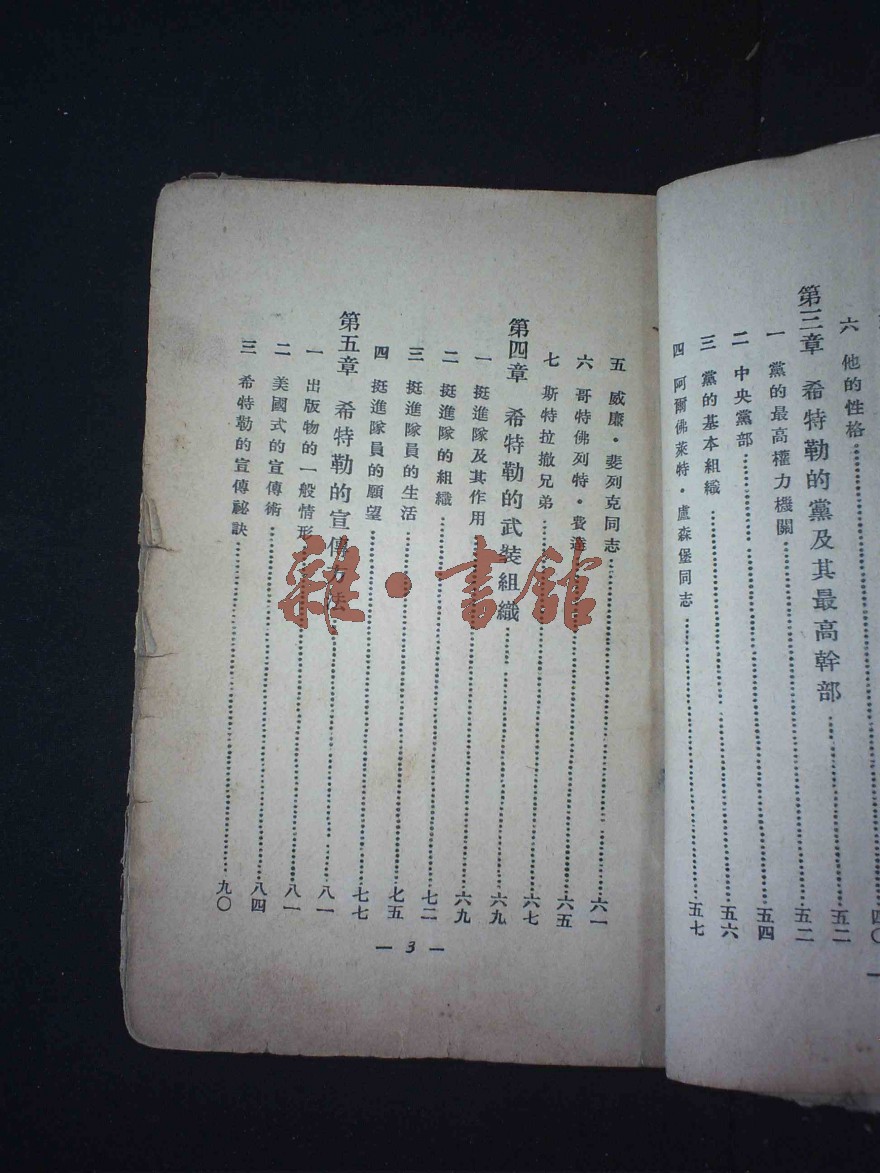 六 他的性格 四〇
第三章 希特勒的黨及其最高幹部 五二
一 黨的最高權力機關 五二
二 中央黨部 五四
三 黨的基本組織 五六
四 阿爾佛萊特·盧森堡同志 五七
五 威廉·斐列克同志 六一
六 哥特佛列特·費 六五
七 斯特拉撤兄弟 六七
第四章 希特勒的武裝組織 六九
一 挺進隊及其作用 六九
二 挺進隊的組織 七二
三 挺進隊員的生活 七五
四 挺進隊員的願望 七七
第五章 希特勒的宣傳方法 八一
一 出版物的一般情形 八一
二 美國式的宣傳術 八四
三 希特勒的宣傳祕訣 九〇
— 3 —
雜·書館